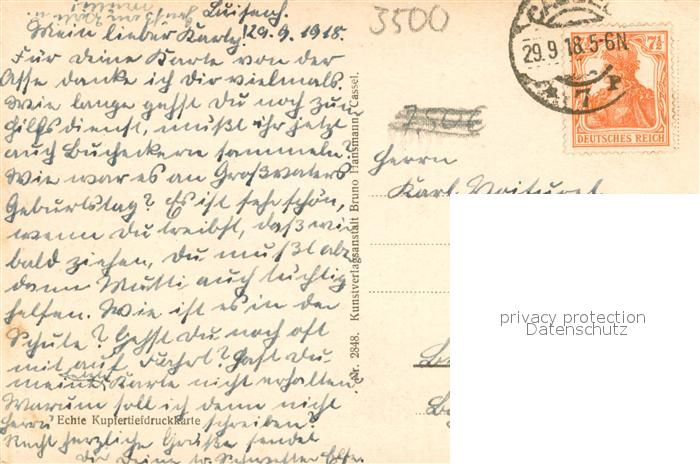 Luisach.
Mein lieber Karly! 29.9.1918.
Für deine Karte von der
Asse danke ich dir vielmals.
Wie lange gehst Du noch zum
Hilfsdienst, mußt ihr jetzt
auch Bucheckern sammeln?
Wie war es an Großvaters
Geburtstag? Es ist sehr schön,
wenn Du treibst, daß wir
bald ziehen, Du mußt aber
dann Mutti auch tüchtig
helfen. Wie ist es in der
Schule? Gehst Du noch oft
mit auf Fahrt? Hast Du
meine Karte nicht erhalten?
Warum soll ich denn nicht
Herrn schreiben?
Recht herzliche Grüße sendet
Dir Deine tr. Schwester Else.
Echte Kupfertiefdruckkarte
Nr. 2848. Kunstverlagsanstalt Bruno Hansmann, Cassel.
3500
CASSEL
29.9.18.5-6N.
* 7
7½
DEUTSCHES REICH
2500
Herrn
Karl
privacy protection
Datenschutz